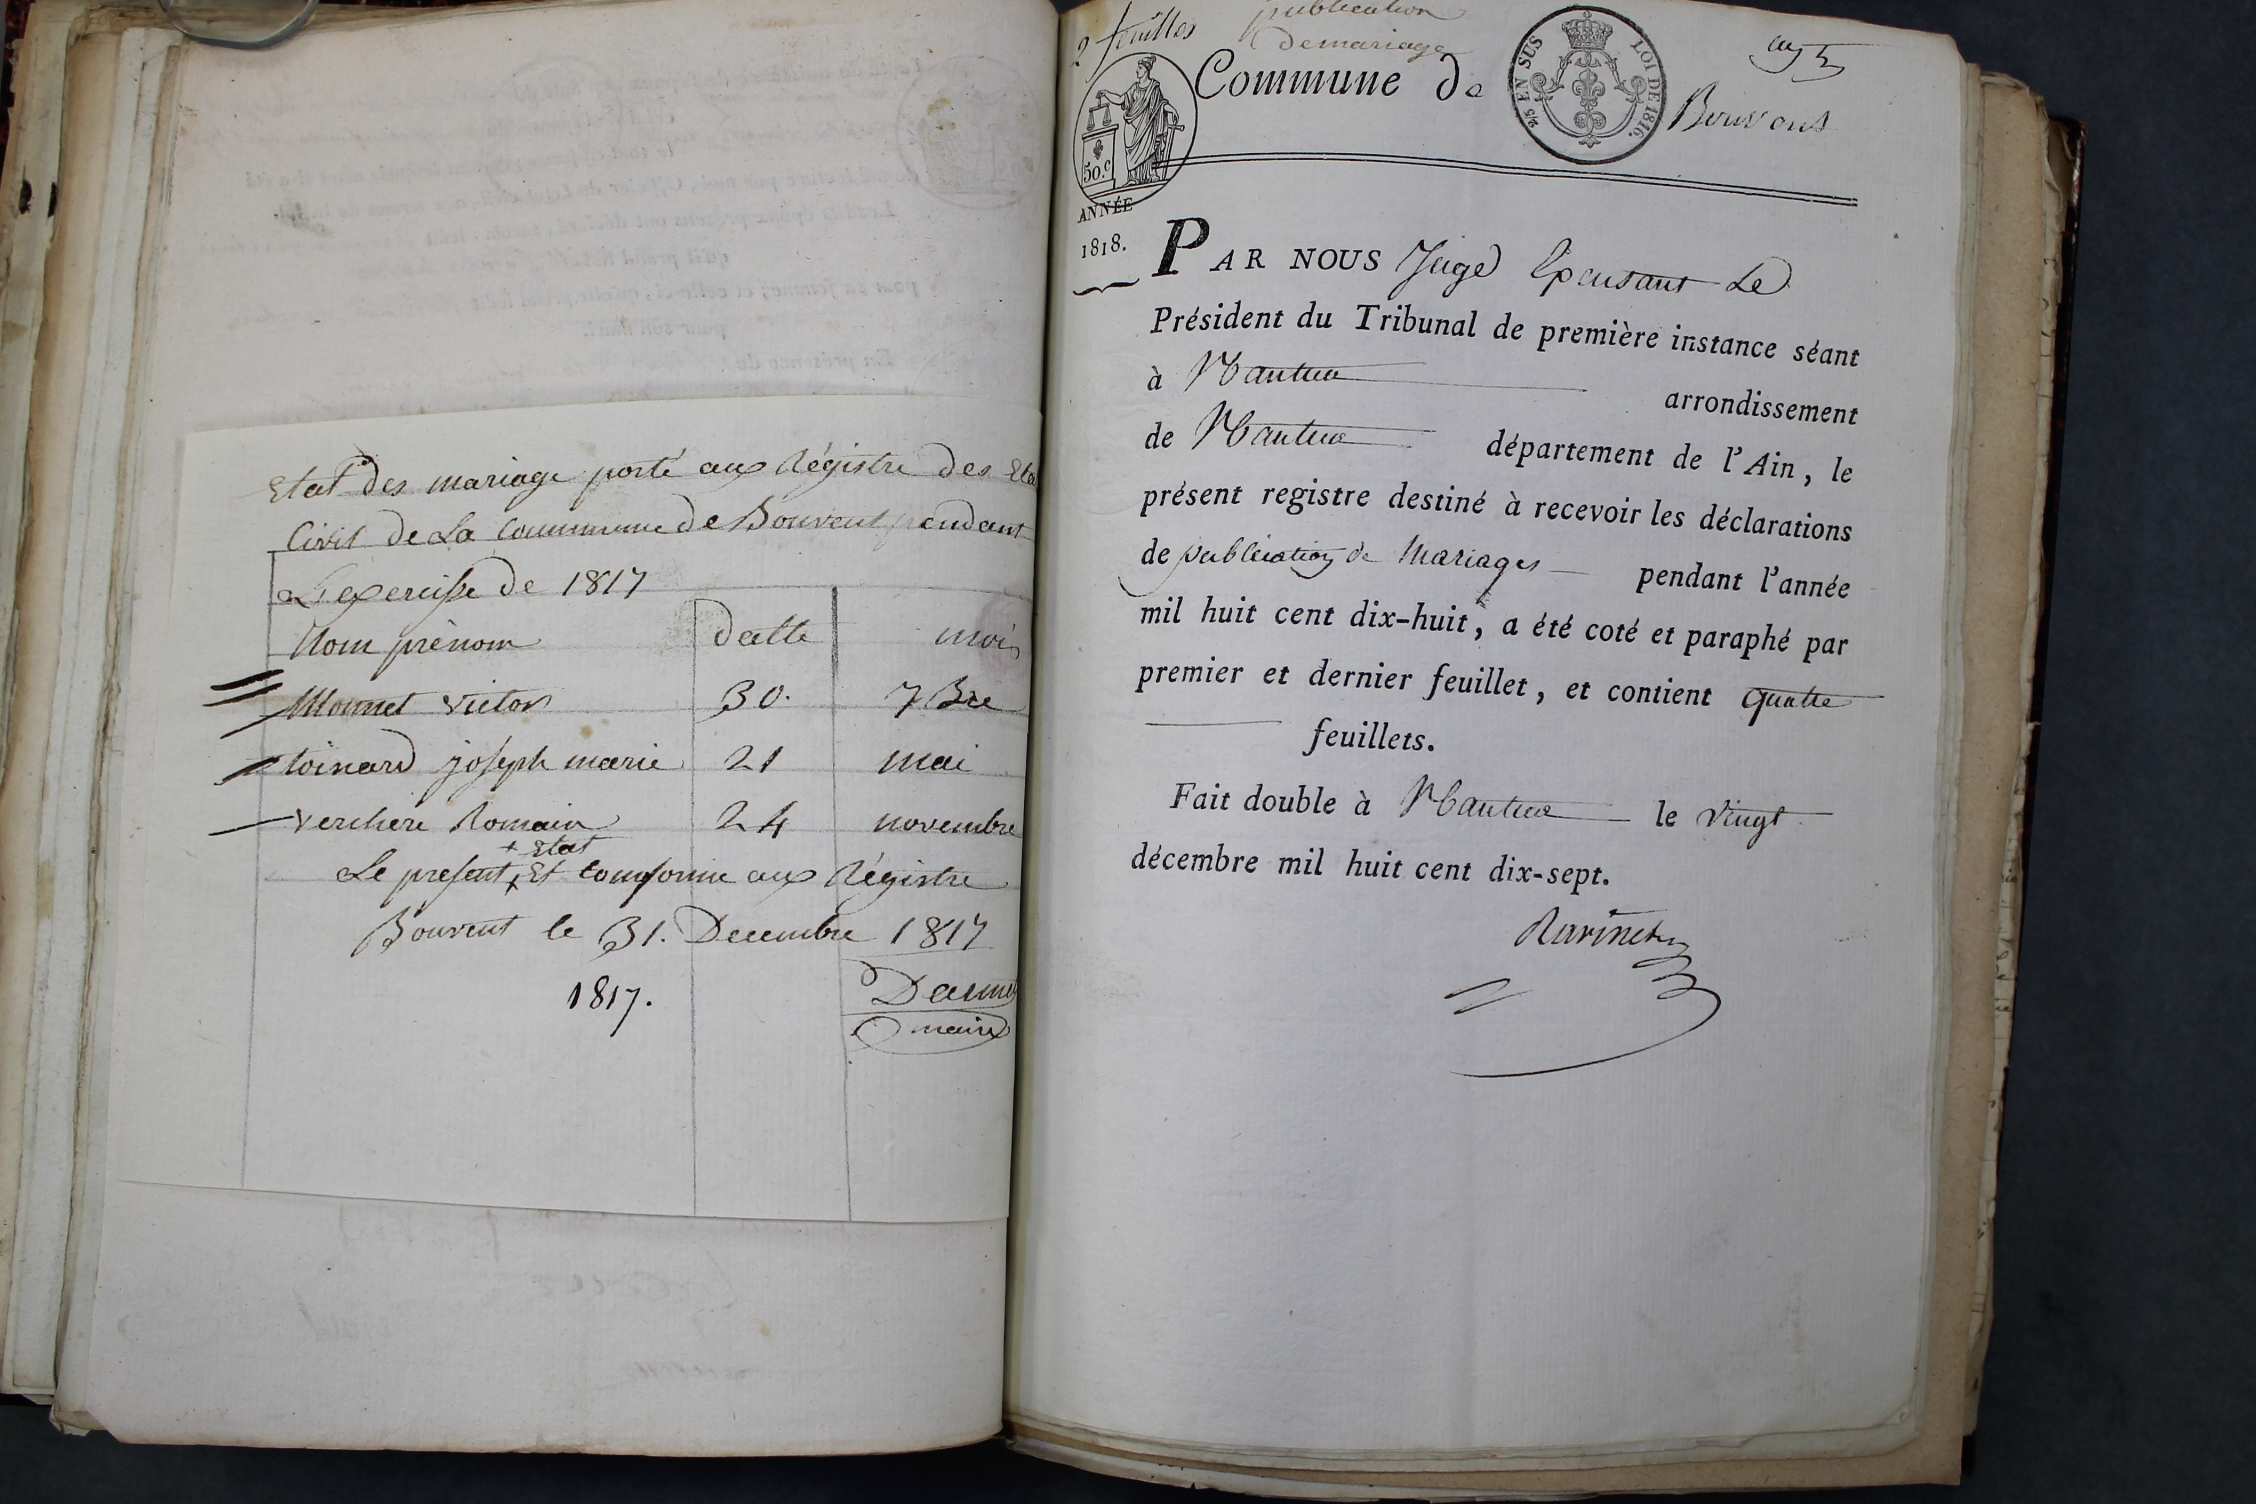 Etat des mariage porté aux Régistre des Eta
Civil de La Commune de Bouvent pendant
L'exercisse de 1817
Nom prénom datte mois
Monnet victor 30. 7bre
toinard joseph marie 21 mai
verchere Romain 24 novembre
+ Etat
Le present + Et Comforme aux Régistre
Bouvent le 31. Decembre 1817
1817.
maire
2 feuilles publication
de mariage
Commune de Bouvent
2/5 EN SUS LOI DE 1816.
50.c
ANNÉE
1818.
PAR NOUS Juge Le
Président du Tribunal de première instance séant
à Nantua arrondissement
de Nantua département de l'Ain, le
présent registre destiné à recevoir les déclarations
de publication de Mariages pendant l'année
mil huit cent dix-huit, a été coté et paraphé par
premier et dernier feuillet, et contient quatre
feuillets.
Fait double à Nantua le vingt
décembre mil huit cent dix-sept.
Ravinet